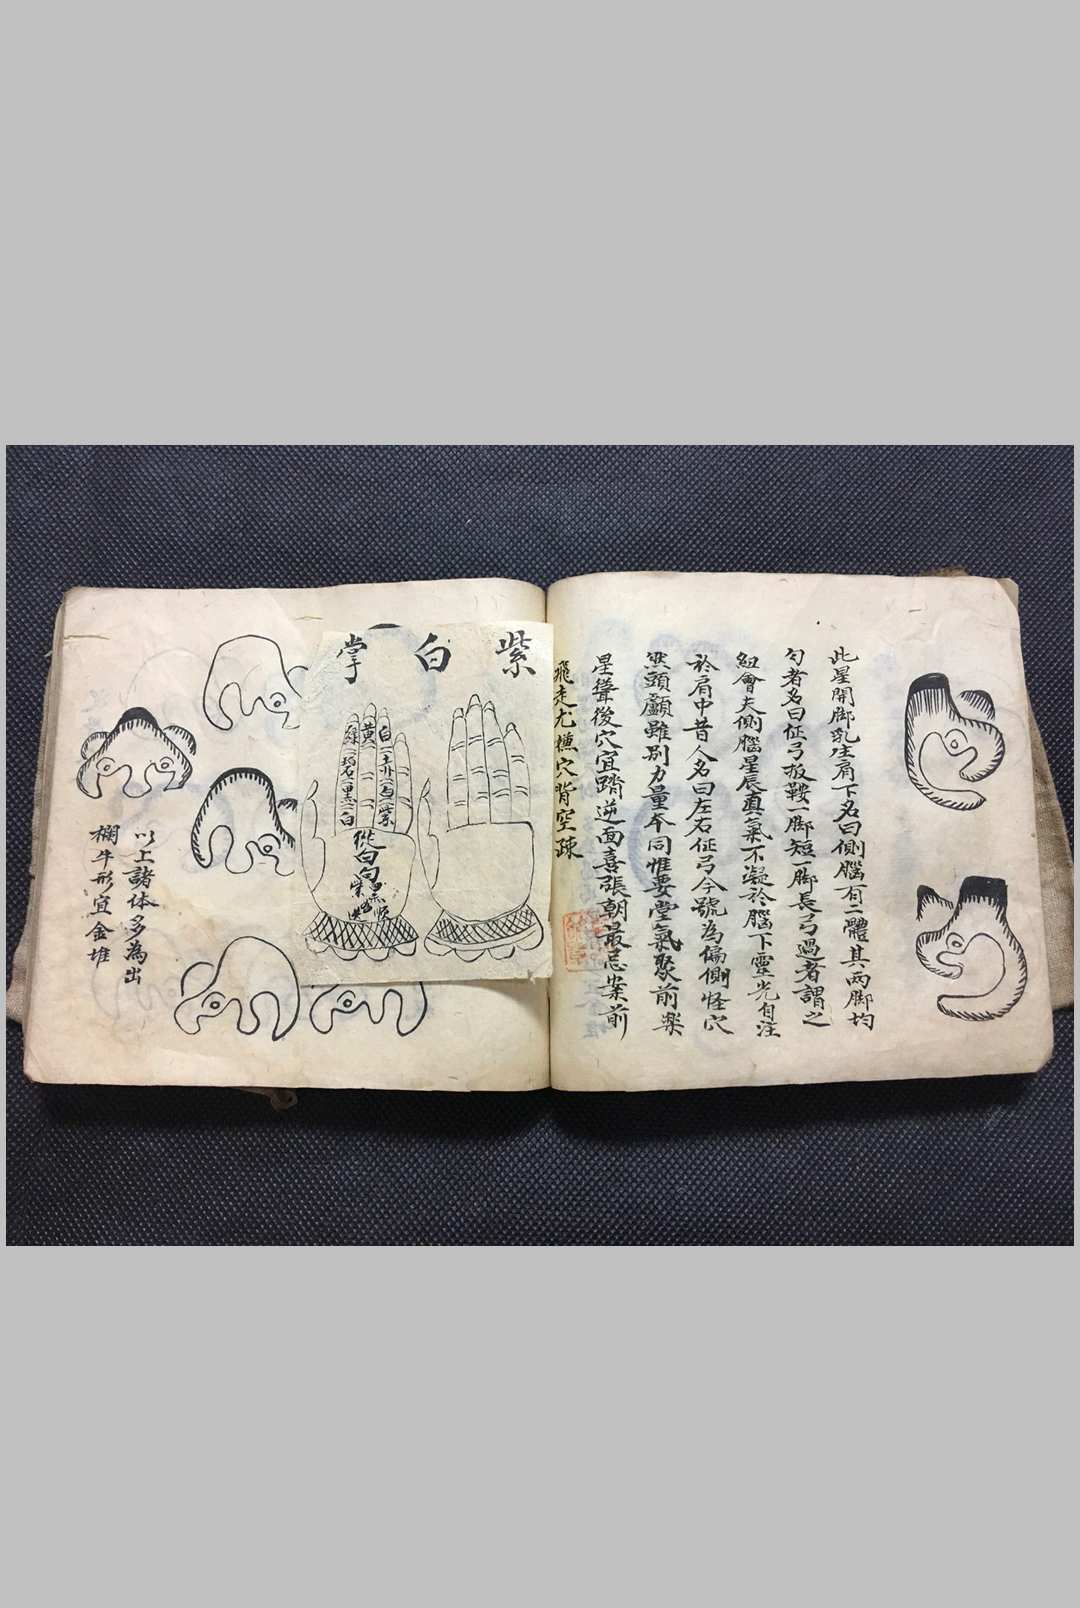 此星開脚乳生肩下名曰側腦有二體其兩脚均
勻者名曰仾弓扳鞍一脚短一脚長弓過者謂之
紐會夫側腦星辰真氣不凝於腦下靈光自注
於肩中昔人名曰左右仾弓今號為偏側怪穴
然頭顱雖別力量夲同惟要堂氣聚前楽
星聳後穴宜踏逆面喜張朝最忌案前
飛走尤憔穴背空疎
紫白掌
白
黄
綠
紫
白
黑
碧
從
以上諸体多為出
欄牛形宜金堆